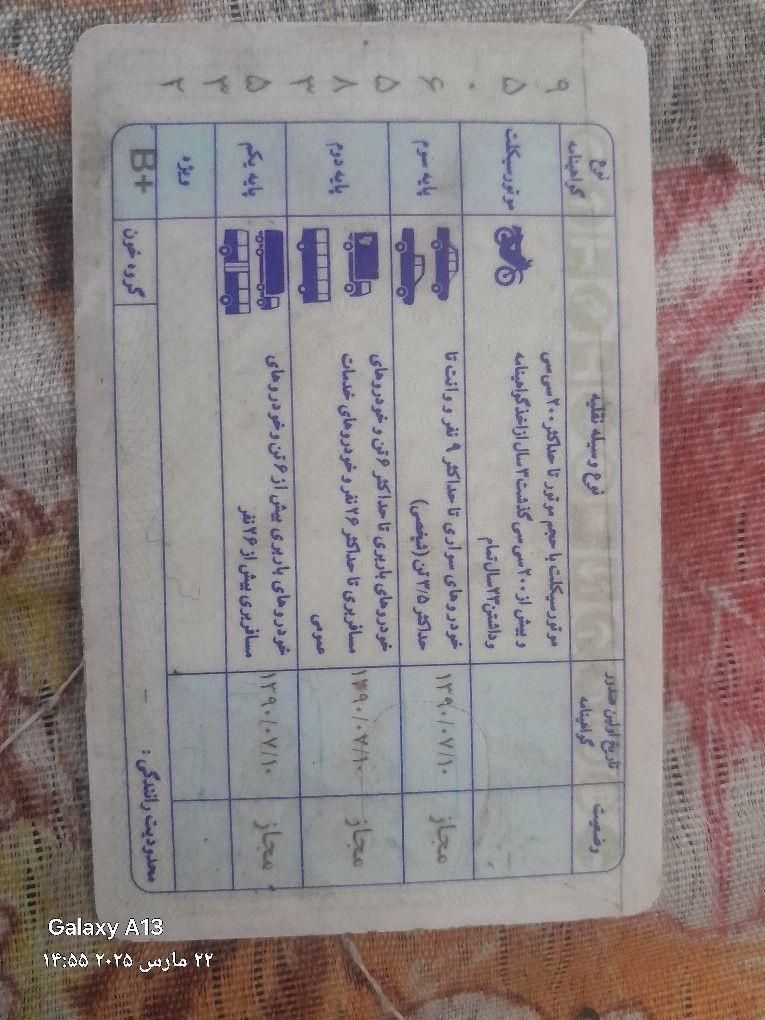 ۹ ۵ ۰ ۶ ۵ ۸ ۳ ۵ ۳ ۲
نوع گواهینامه
نوع وسیله نقلیه
تاریخ اولین صدور گواهینامه
وضعیت
موتورسیکلت
موتورسیکلت با حجم موتور تا حداکثر ۲۰۰ سی سی
و بیش از ۲۰۰ سی سی گذشت ۳ سال از اخذ گواهینامه
و داشتن ۲۳ سال تمام
پایه سوم
خودروهای سواری تا حداکثر ۹ نفر و وانت تا
حداکثر ۳/۵ تن (شخصی)
۱۳۹۰/۰۷/۱۰
مجاز
پایه دوم
خودروهای باربری تا حداکثر ۶ تن و خودروهای
مسافربری تا حداکثر ۲۶ نفر و خودروهای خدمات
عمومی
۱۳۹۰/۰۷/۱۰
مجاز
پایه یکم
خودروهای باربری بیش از ۶ تن و خودروهای
مسافربری بیش از ۲۶ نفر
۱۳۹۰/۰۷/۱۰
مجاز
ویژه
B+
گروه خون
محدودیت رانندگی : -
Galaxy A13
۲۲ مارس ۲۰۲۵ ۱۴:۵۵